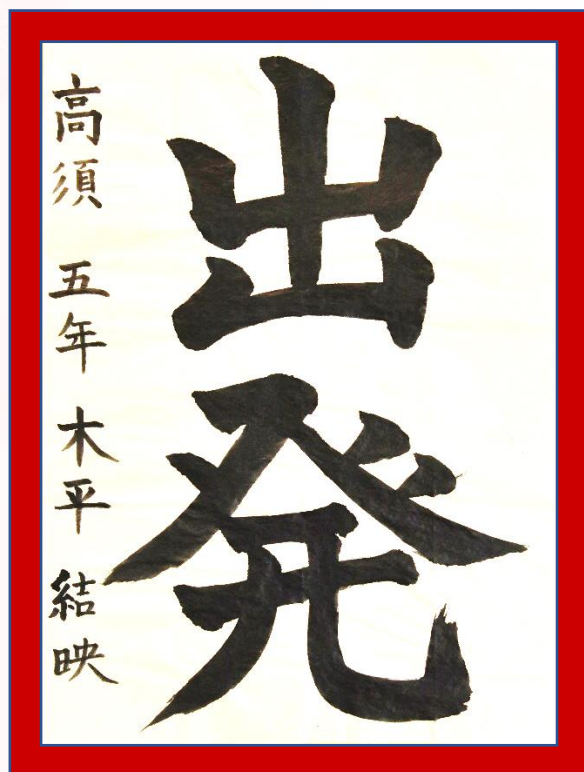 出発
高須 五年 木平 結映